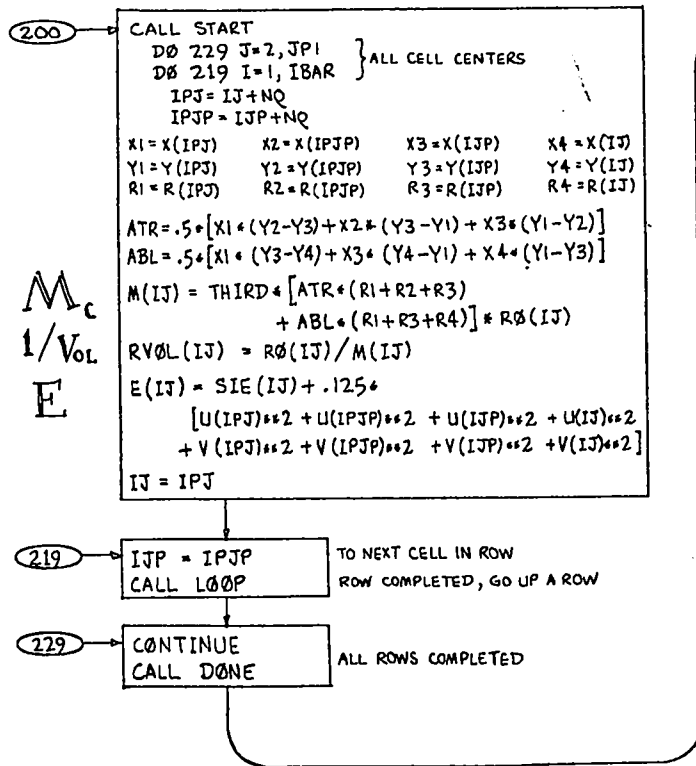 200
CALL START
DØ 229 J=2, JP1
DØ 219 I=1, IBAR
} ALL CELL CENTERS
IPJ = IJ+NQ
IPJP = IJP+NQ
X1 = X(IPJ) X2 = X(IPJP) X3 = X(IJP) X4 = X(IJ)
Y1 = Y(IPJ) Y2 = Y(IPJP) Y3 = Y(IJP) Y4 = Y(IJ)
R1 = R(IPJ) R2 = R(IPJP) R3 = R(IJP) R4 = R(IJ)
ATR = .5*[X1*(Y2-Y3)+X2*(Y3-Y1)+X3*(Y1-Y2)]
ABL = .5*[X1*(Y3-Y4)+X3*(Y4-Y1)+X4*(Y1-Y3)]
Mc
M(IJ) = THIRD*[ATR*(R1+R2+R3)
+ ABL*(R1+R3+R4)]*RØ(IJ)
1/VOL
RVØL(IJ) = RØ(IJ)/M(IJ)
E
E(IJ) = SIE(IJ)+.125*
[U(IPJ)**2 + U(IPJP)**2 + U(IJP)**2 + U(IJ)**2
+ V(IPJ)**2 + V(IPJP)**2 + V(IJP)**2 + V(IJ)**2]
IJ = IPJ
219
IJP = IPJP TO NEXT CELL IN ROW
CALL LØØP ROW COMPLETED, GO UP A ROW
229
CØNTINUE
CALL DØNE ALL ROWS COMPLETED